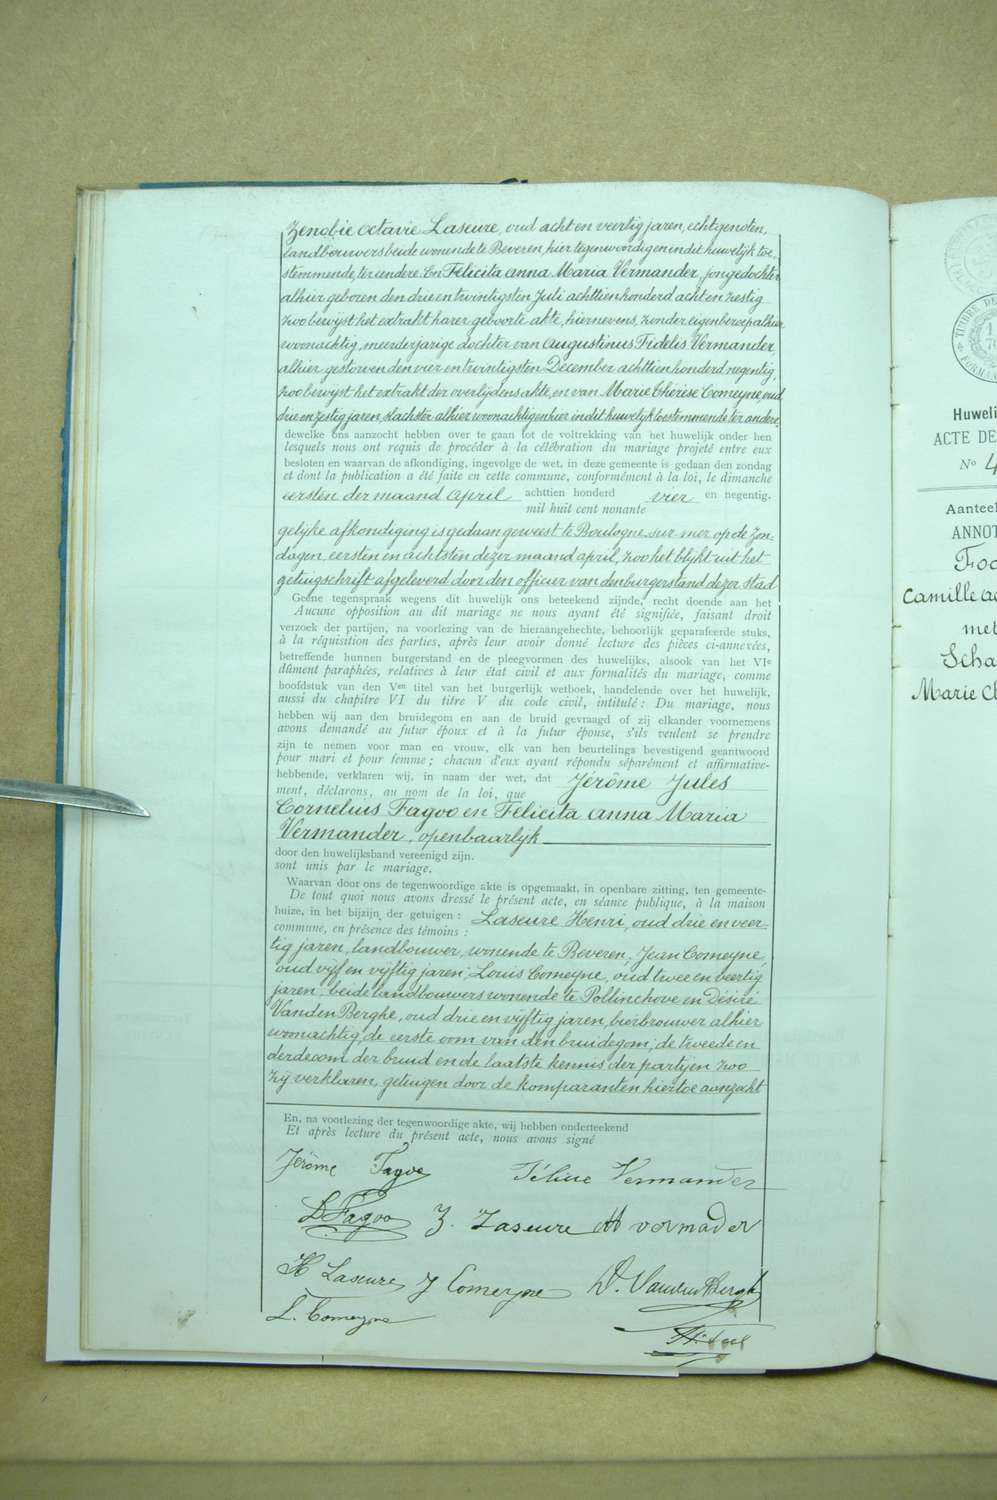 Zenobie Octavie Laseure, oud acht en veertig jaren, echtgenoten,
landbouwers beide wonende te Beveren, hier tegenwoordig en in dit huwelijk toe-
stemmende, ter eendere. En Felicita Anna Maria Vermander, jongedochter
alhier geboren den drie en twintigsten Juli achttien honderd acht en zestig
zoo bewijst het extrakt harer geboorte akte, hiernevens, zonder eigen beroep alhier
woonachtig, meerderjarige dochter van Augustinus Fidelis Vermander,
alhier gestorven den vier en twintigsten December achttien honderd negentig,
zoo bewijst het extrakt der overlijdens akte, en van Marie Thérèse Comeyne, oud
drie en zestig jaren, slachster alhier woonachtig en hier in dit huwelijk toestemmende ter andere,
dewelke ons aanzocht hebben over te gaan tot de voltrekking van het huwelijk onder hen
lesquels nous ont requis de procéder à la célébration du mariage projeté entre eux
besloten en waarvan de afkondiging, ingevolge de wet, in deze gemeente is gedaan den zondag
et dont la publication a été faite en cette commune, conformément à la loi, le dimanche
eersten der maand April achttien honderd vier en negentig.
mil huit cent nonante
gelijke afkondiging is gedaan geweest te Boulogne sur mer op de Zon-
dagen, eersten en achtsten dezer maand april, zoo het blijkt uit het
getuigschrift afgeleverd door den officier van den burgerstand dezer stad
Geene tegenspraak wegens dit huwelijk ons beteekend zijnde, recht doende aan het
Aucune opposition au dit mariage ne nous ayant été signifiée, faisant droit
verzoek der partijen, na voorlezing van de hieraangehechte, behoorlijk geparafeerde stuks,
à la réquisition des parties, après leur avoir donné lecture des pièces ci-annexées,
betreffende hunnen burgerstand en de pleegvormen des huwelijks, alsook van het VIe
dûment paraphées, relatives à leur état civil et aux formalités du mariage, comme
hoofdstuk van den Ven titel van het burgerlijk wetboek, handelende over het huwelijk,
aussi du chapitre VI du titre V du code civil, intitulé : Du mariage, nous
hebben wij aan den bruidegom en aan de bruid gevraagd of zij elkander voornemens
avons demandé au futur époux et à la future épouse, s'ils veulent se prendre
zijn te nemen voor man en vrouw, elk van hen beurtelings bevestigend geantwoord
pour mari et pour femme ; chacun d'eux ayant répondu séparément et affirmative-
hebbende, verklaren wij, in naam der wet, dat Jérôme Jules
ment, déclarons, au nom de la loi, que
Cornelius Fagoo en Felicita Anna Maria
Vermander, openbaarlijk
door den huwelijksband vereenigd zijn.
sont unis par le mariage.
Waarvan door ons de tegenwoordige akte is opgemaakt, in openbare zitting, ten gemeente-
De tout quoi nous avons dressé le présent acte, en séance publique, à la maison
huize, in het bijzijn der getuigen : Laseure Henri, oud drie en veer-
commune, en présence des témoins :
tig jaren, landbouwer, wonende te Beveren, Jean Comeyne,
oud vijf en vijftig jaren, Louis Comeyne, oud twee en veertig
jaren, beide landbouwers wonende te Pollinchove en Désiré
Vanden Berghe, oud drie en vijftig jaren, bierbrouwer alhier
woonachtig, de eerste oom van den bruidegom, de tweede en
derde oom der bruid en de laatste kennis der partijen zoo
zij verklaren, getuigen door de komparanten hiertoe aanzocht
En, na voorlezing der tegenwoordige akte, wij hebben onderteekend
Et après lecture du présent acte, nous avons signé
Jérôme Fagoo Féline Vermander
D Fagoo Z. Laseure M vermader
H Laseure J Comeyne D. Vanden Berghe
L. Comeyne
Huweli
ACTE DE
No 4
Aanteek
ANNOT
Foc
Camille
met
Scha
Marie Cl